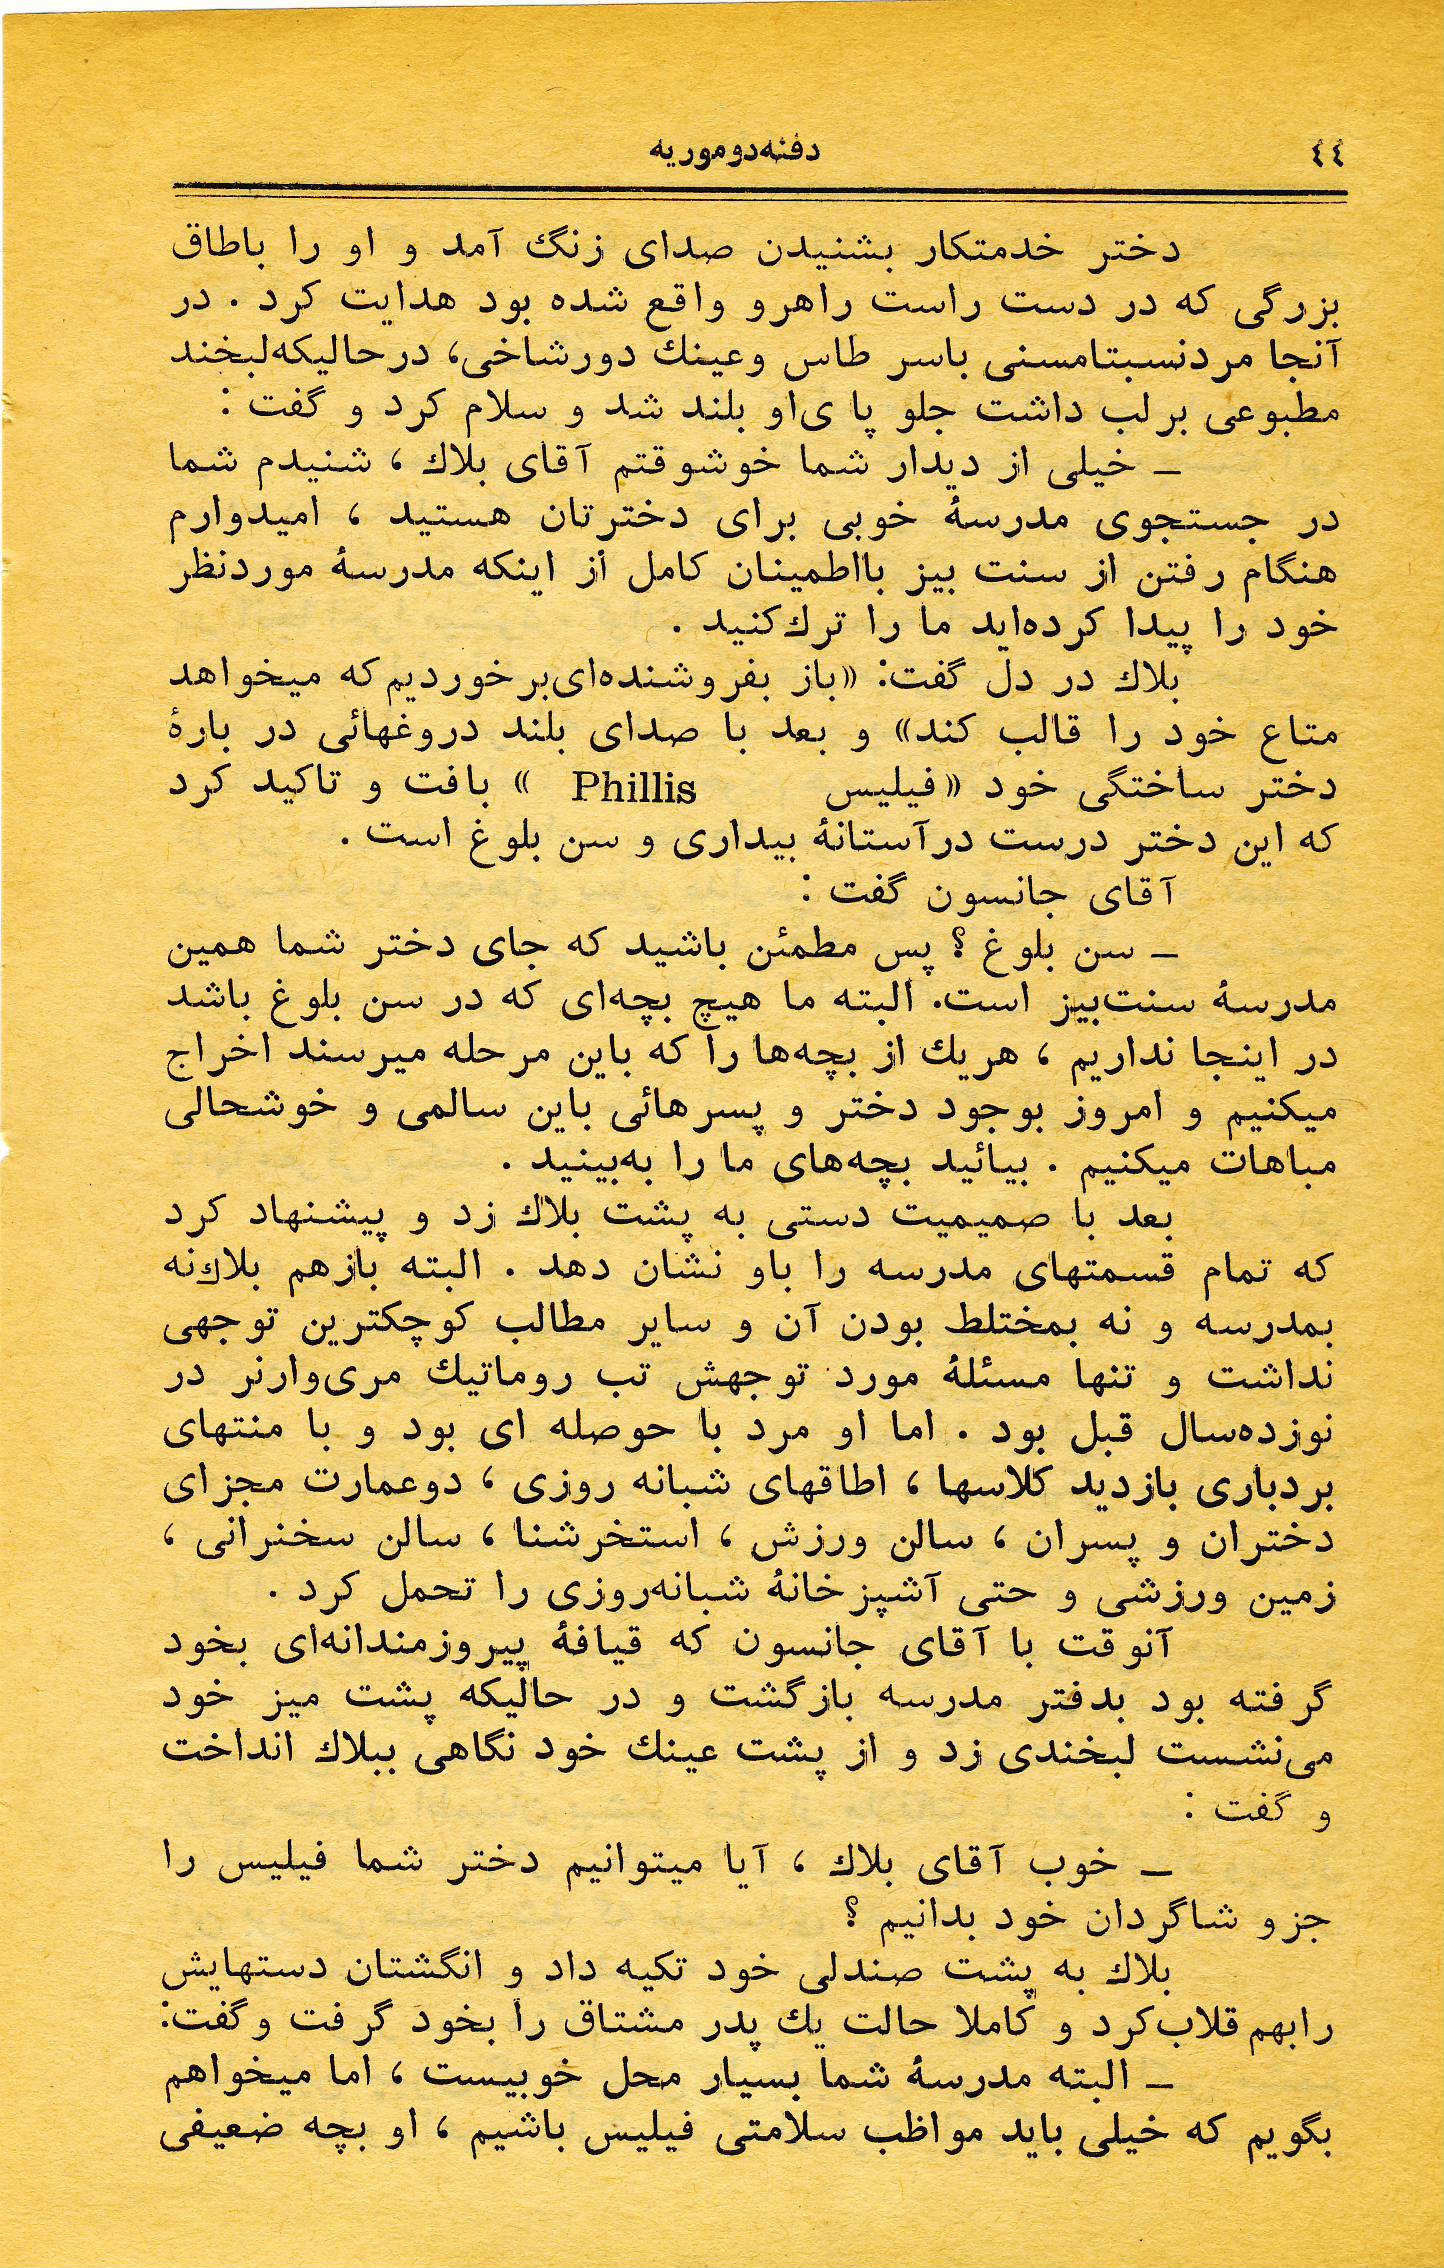 ٤٤
دفنه‌دوموریه
دختر خدمتکار بشنیدن صدای زنگ آمد و او را باطاق
بزرگی که در دست راست راهرو واقع شده بود هدایت کرد . در
آنجا مردنسبتامسنی باسر طاس وعینك دورشاخی، درحالیکه‌لبخند
مطبوعی برلب داشت جلو پا ی‌او بلند شد و سلام کرد و گفت :
ـ خیلی از دیدار شما خوشوقتم آقای بلاك ، شنیدم شما
در جستجوی مدرسۀ خوبی برای دخترتان هستید ، امیدوارم
هنگام رفتن از سنت بیز بااطمینان کامل از اینکه مدرسۀ موردنظر
خود را پیدا کرده‌اید ما را ترك‌کنید .
بلاك در دل گفت: «باز بفروشنده‌ای‌برخوردیم‌که میخواهد
متاع خود را قالب کند» و بعد با صدای بلند دروغهائی در بارۀ
دختر ساختگی خود «فیلیس Phillis » بافت و تاکید کرد
که این دختر درست درآستانۀ بیداری و سن بلوغ است .
آقای جانسون گفت :
ـ سن بلوغ ؟ پس مطمئن باشید که جای دختر شما همین
مدرسۀ سنت‌بیز است. البته ما هیچ بچه‌ای که در سن بلوغ باشد
در اینجا نداریم ، هریك از بچه‌ها را که باین مرحله میرسند اخراج
میکنیم و امروز بوجود دختر و پسرهائی باین سالمی و خوشحالی
مباهات میکنیم . بیائید بچه‌های ما را به‌بینید .
بعد با صمیمیت دستی به پشت بلاك زد و پیشنهاد کرد
که تمام قسمتهای مدرسه را باو نشان دهد . البته بازهم بلاك‌نه
بمدرسه و نه بمختلط بودن آن و سایر مطالب کوچکترین توجهی
نداشت و تنها مسئلۀ مورد توجهش تب روماتیك مری‌وارنر در
نوزده‌سال قبل بود . اما او مرد با حوصله ای بود و با منتهای
بردباری بازدید کلاسها ، اطاقهای شبانه روزی ، دوعمارت مجزای
دختران و پسران ، سالن ورزش ، استخرشنا ، سالن سخنرانی ،
زمین ورزشی و حتی آشپزخانۀ شبانه‌روزی را تحمل کرد .
آنوقت با آقای جانسون که قیافۀ پیروزمندانه‌ای بخود
گرفته بود بدفتر مدرسه بازگشت و در حالیکه پشت میز خود
می‌نشست لبخندی زد و از پشت عینك خود نگاهی ببلاك انداخت
و گفت :
ـ خوب آقای بلاك ، آیا میتوانیم دختر شما فیلیس را
جزو شاگردان خود بدانیم ؟
بلاك به پشت صندلی خود تکیه داد و انگشتان دستهایش
رابهم‌قلاب‌کرد و کاملا حالت یك پدر مشتاق را بخود گرفت وگفت:
ـ البته مدرسۀ شما بسیار محل خوبیست ، اما میخواهم
بگویم که خیلی باید مواظب سلامتی فیلیس باشیم ، او بچه ضعیفی